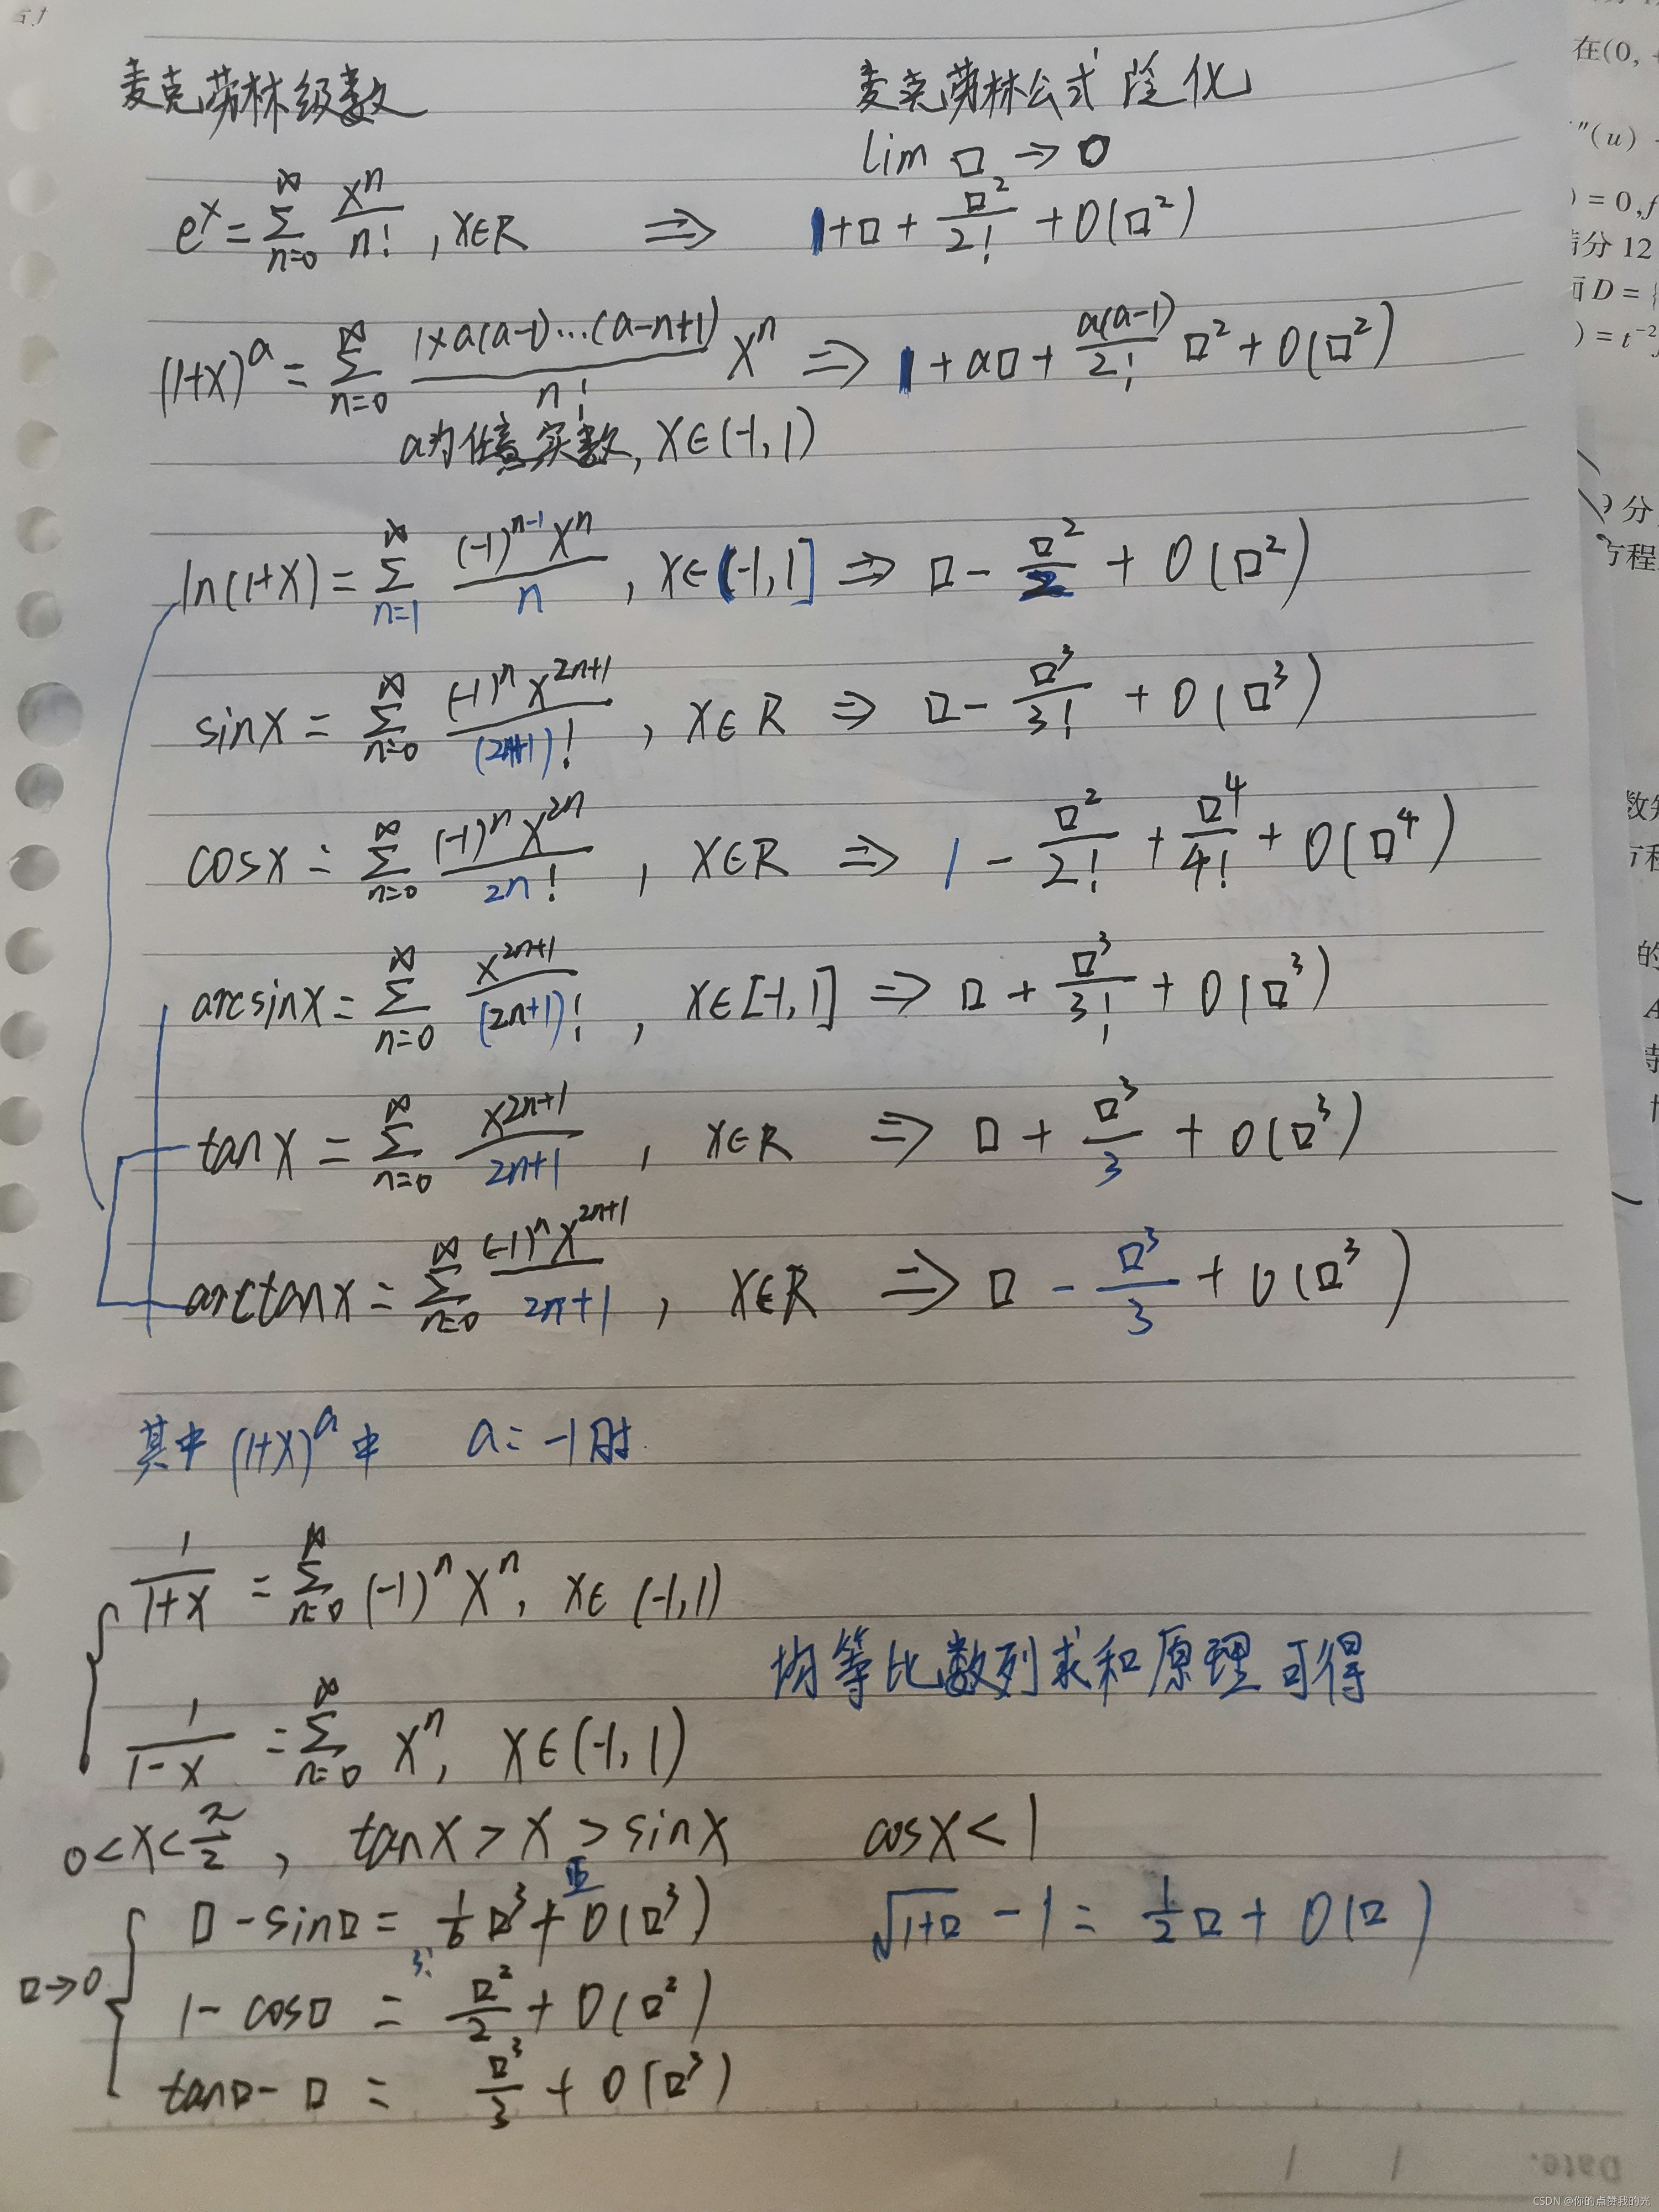 麦克劳林级数
麦克劳林公式 陉化
lim □ → 0
e^x = Σ_{n=0}^{∞} x^n/n! , x∈R ⇒ 1+□+□²/2!+o(□²)
(1+x)^a = Σ_{n=0}^{∞} 1×a(a-1)…(a-n+1)/n! x^n ⇒ 1+a□+a(a-1)/2! □²+o(□²)
a为任意实数, x∈(-1,1)
ln(1+x) = Σ_{n=1}^{∞} (-1)^{n-1}x^n/n , x∈(-1,1] ⇒ □-□²/2+o(□²)
sinx = Σ_{n=0}^{∞} (-1)^n x^{2n+1}/(2n+1)! , x∈R ⇒ □-□³/3!+o(□³)
cosx = Σ_{n=0}^{∞} (-1)^n x^{2n}/2n! , x∈R ⇒ 1-□²/2!+□⁴/4!+o(□⁴)
arcsinx = Σ_{n=0}^{∞} x^{2n+1}/(2n+1)! , x∈[-1,1] ⇒ □+□³/3!+o(□³)
tanx = Σ_{n=0}^{∞} x^{2n+1}/2n+1 , x∈R ⇒ □+□³/3+o(□³)
arctanx = Σ_{n=0}^{∞} (-1)^n x^{2n+1}/2n+1 , x∈R ⇒ □-□³/3+o(□³)
其中 (1+x)^a 中 a=-1时
1/1+x = Σ_{n=0}^{∞} (-1)^n x^n, x∈(-1,1)
均等比数列求和原理可得
1/1-x = Σ_{n=0}^{∞} x^n, x∈(-1,1)
0<x<π/2 , tanx>x>sinx cosx<1
□→0
□-sin□ = 1/6 □³+o(□³) √1+□ -1 = 1/2 □+o(□)
3!
1-cos□ = □²/2+o(□²)
tan□-□ = □³/3+o(□³)
在(0,
"(u)
)=0,f
分 12
D=
)=t^{-2}
9 分
方程
数
的
Date.
CSDN @你的点赞我的光